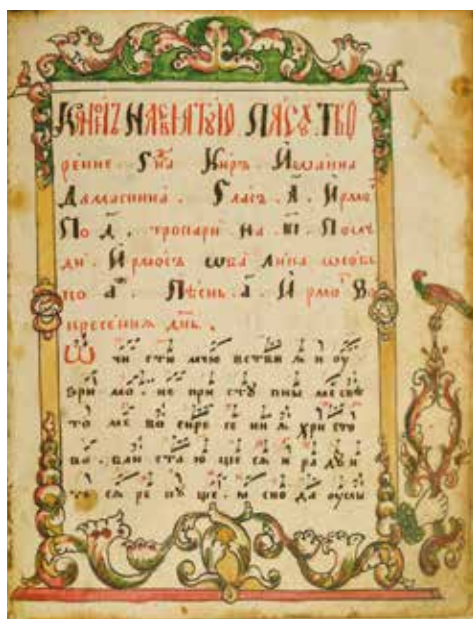 Канѡнъ на свѧтꙋю пасхꙋ . Тво
рение . Киръ . Иѡанна
Дамаскина . Гласъ . а҃ . Ирмо
По д҃ . тропари на в҃і . Послѣ
ди . Ирмосъ ѡба лика ѡсобь
по а҃ . Пѣснь . а҃ . Ирмо Во
кресения днь .
Ѡ чи сти мчю вствиꙗ и оу
зри мо . не при стꙋ пны ме свѣ
то ме во скре се ни ѧ хри сто
во . бли ста ю ще сѧ и ра дꙋ и
то сѧ ще . ѧ сно да оуслы